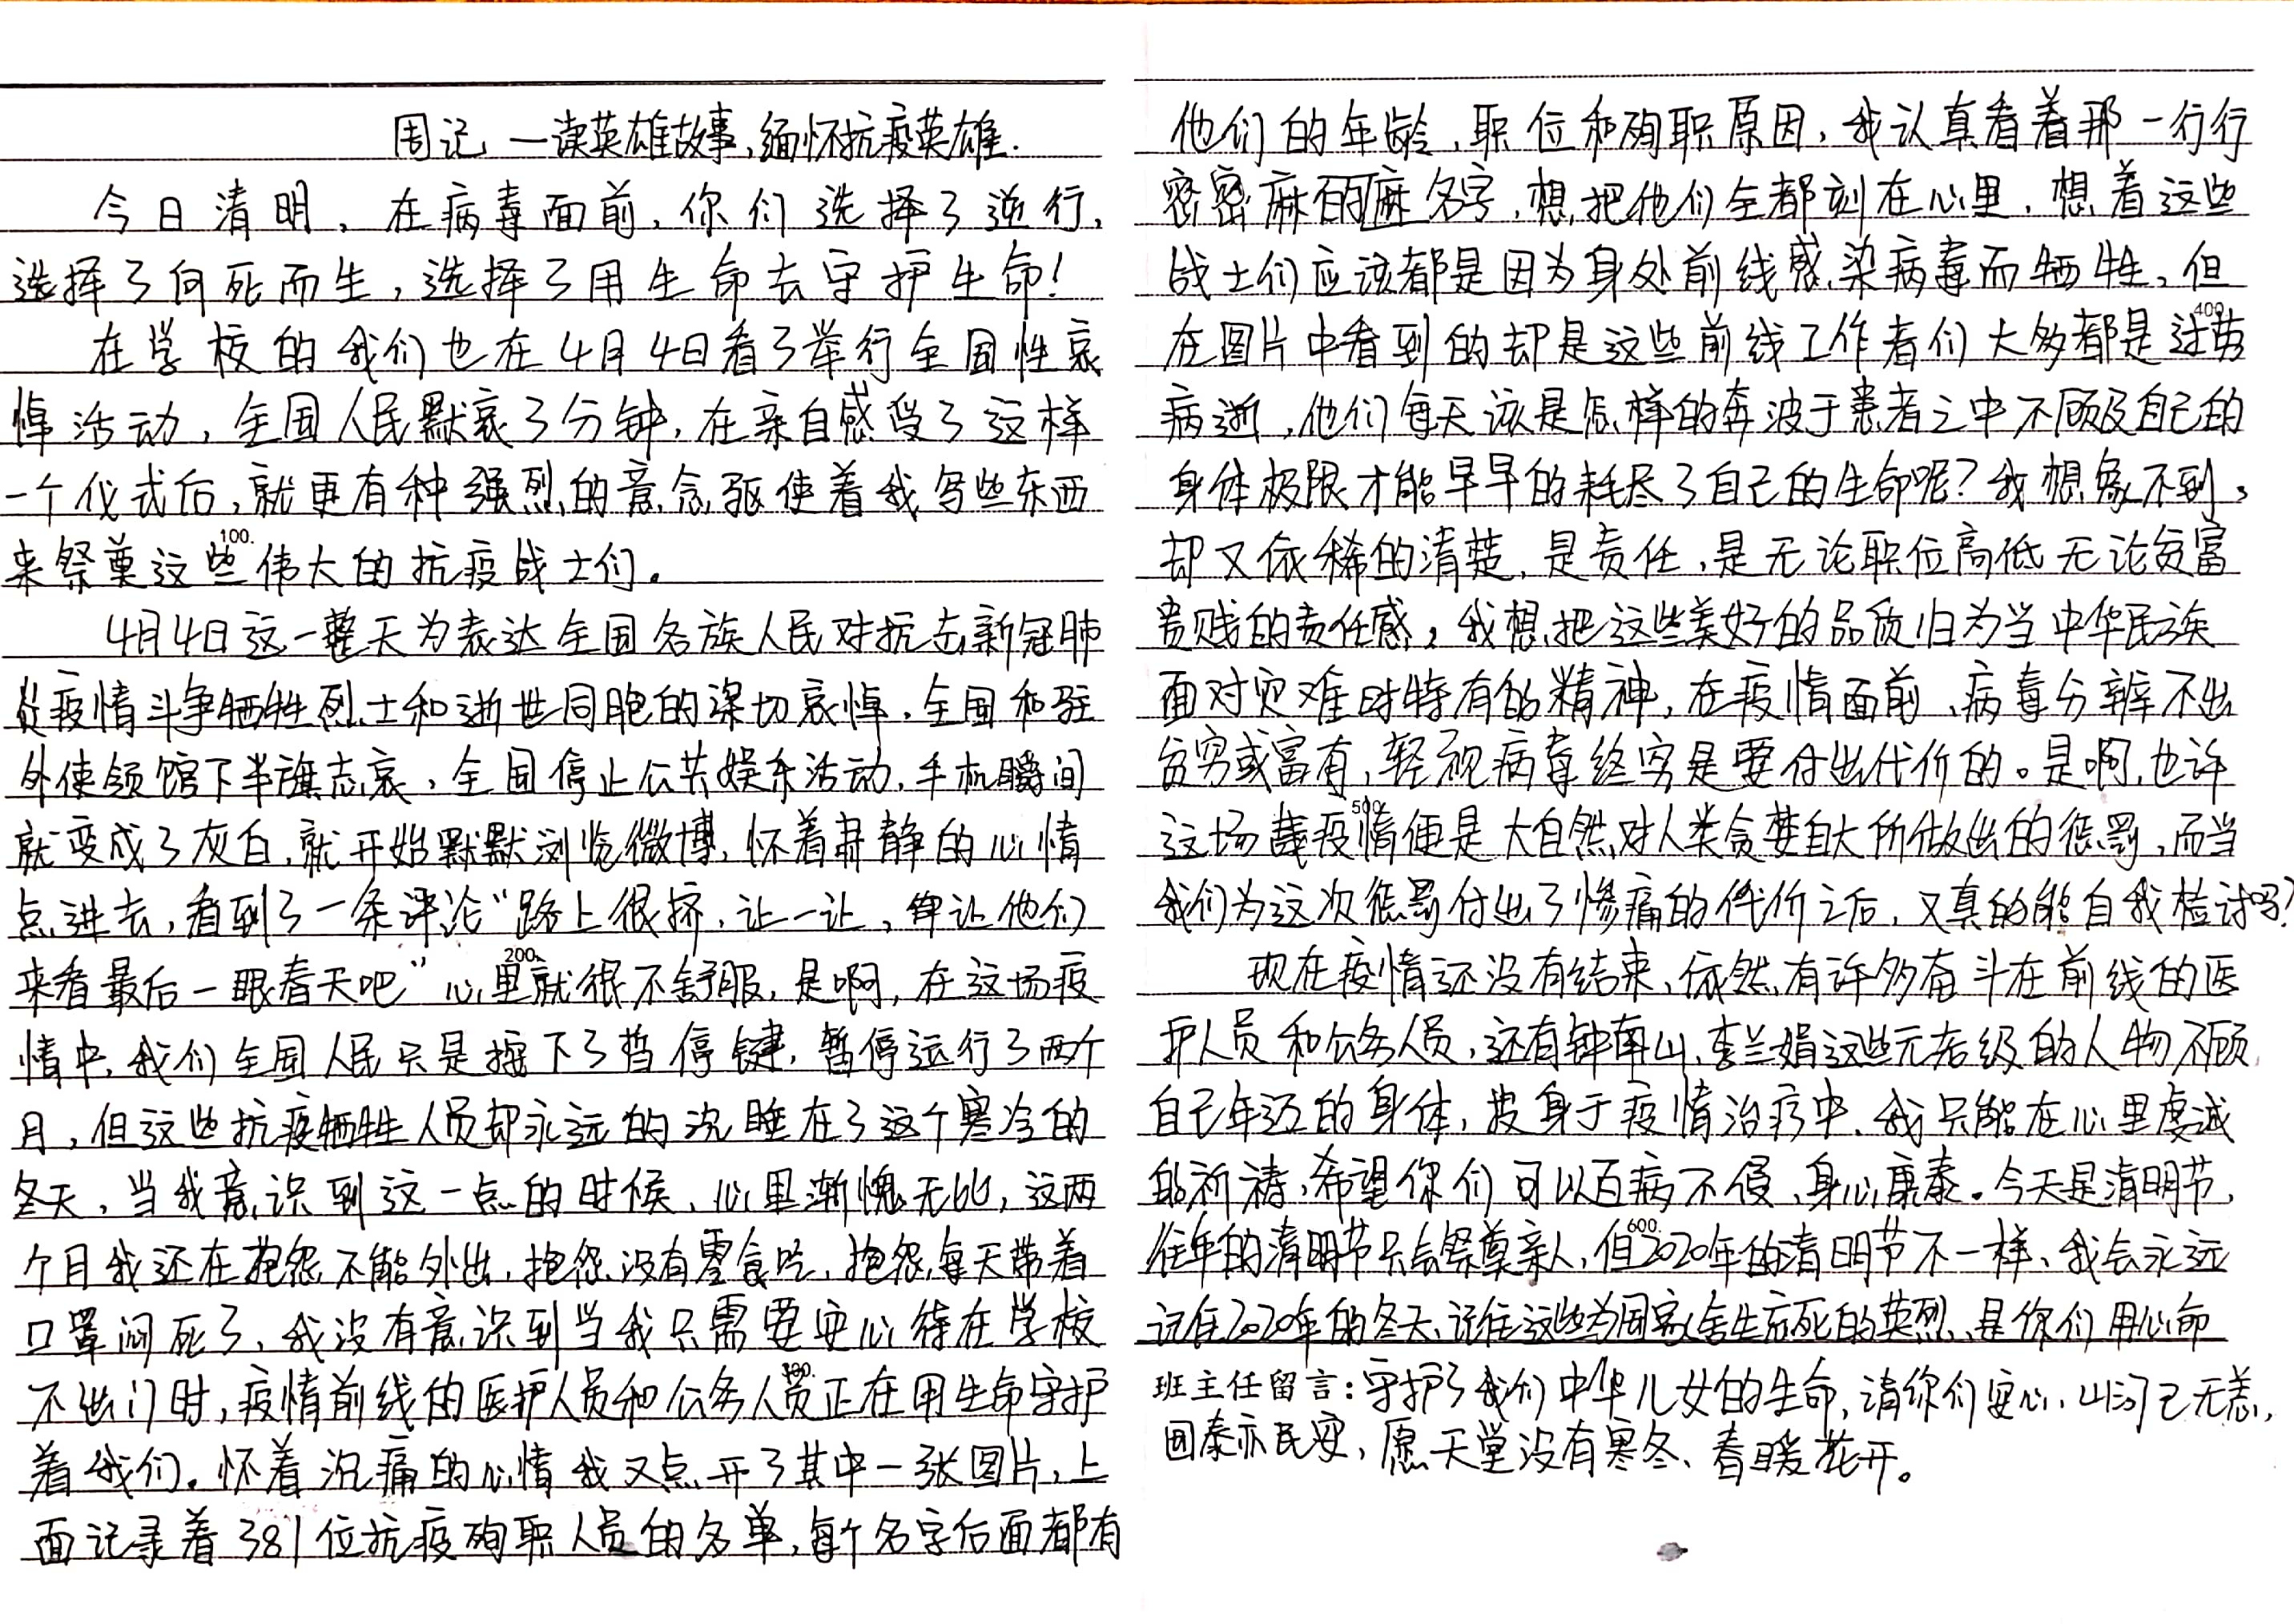 周记 —读英雄故事,缅怀抗疫英雄.
今日清明，在病毒面前，你们选择了逆行，
选择了向死而生，选择了用生命去守护生命！
在学校的我们也在4月4日看了举行全国性哀
悼活动，全国人民默哀3分钟，在亲自感受了这样
一个仪式后，就更有种强烈的意念驱使着我写些东西
100.
来祭奠这些伟大的抗疫战士们。
4月4日这一整天为表达全国各族人民对抗击新冠肺
炎疫情斗争牺牲烈士和逝世同胞的深切哀悼，全国和驻
外使领馆下半旗志哀，全国停止公共娱乐活动，手机瞬间
就变成了灰白，就开始默默浏览微博，怀着肃静的心情
点进去，看到了一条评论“路上很挤，让一让，让他们
200.
来看最后一眼春天吧”心里就很不舒服，是啊，在这场疫
情中，我们全国人民只是摁下了暂停键，暂停运行了两个
月，但这些抗疫牺牲人员却永远的沉睡在了这个寒冷的
冬天，当我意识到这一点的时候，心里渐愧无比，这两
个月我还在抱怨不能外出，抱怨没有零食吃，抱怨每天带着
口罩闷死了，我没有意识到当我只需要安心待在学校
300.
不出门时，疫情前线的医护人员和公务人员正在用生命守护
着我们。怀着沉痛的心情我又点开了其中一张图片，上
面记录着381位抗疫殉职人员的名单，每个名字后面都有
他们的年龄、职位和殉职原因，我认真看着那一行行
密密麻麻的名字，想把他们全都刻在心里，想着这些
战士们应该都是因为身处前线感染病毒而牺牲，但
400.
在图片中看到的却是这些前线工作者们大多都是过劳
病逝，他们每天该是怎样的奔波于患者之中不顾及自己的
身体极限才能早早的耗尽了自己的生命呢？我想象不到，
却又依稀的清楚，是责任，是无论职位高低无论贫富
贵贱的责任感，我想把这些美好的品质归为当中华民族
面对灾难时特有的精神，在疫情面前，病毒分辨不出
贫穷或富有，轻视病毒终究是要付出代价的。是啊，也许
500.
这场疫情便是大自然对人类贪婪自大所做出的惩罚，而当
我们为这次惩罚付出了惨痛的代价之后，又真的能自我检讨吗？
现在疫情还没有结束，依然有许多奋斗在前线的医
护人员和公务人员，还有钟南山，李兰娟这些元老级的人物不顾
自己年迈的身体，投身于疫情治疗中，我只能在心里虔诚
的祈祷，希望你们可以百病不侵，身心康泰。今天是清明节，
600.
往年的清明节只会祭奠亲人，但2020年的清明节不一样，我会永远
记住2020年的冬天，记住这些为国家舍生忘死的英烈，是你们用心命
班主任留言：守护了我们中华儿女的生命，请你们安心，山河已无恙，
国泰亦民安，愿天堂没有寒冬，春暖花开。